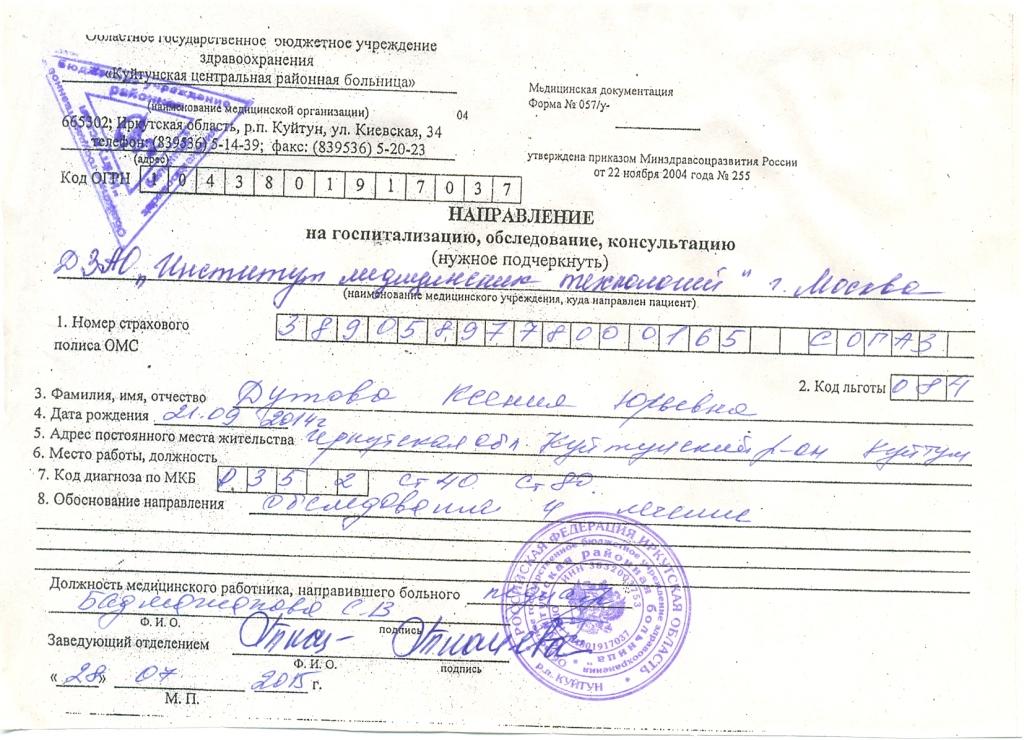 Областное государственное бюджетное учреждение
здравоохранения
«Куйтунская центральная районная больница»
(наименование медицинской организации) 04
665302; Иркутская область, р.п. Куйтун, ул. Киевская, 34
телефон: (839536) 5-14-39; факс: (839536) 5-20-23
(адрес)
Код ОГРН 1 0 4 3 8 0 1 9 1 7 0 3 7
Медицинская документация
Форма № 057/у-
утверждена приказом Минздравсоцразвития России
от 22 ноября 2004 года № 255
НАПРАВЛЕНИЕ
на госпитализацию, обследование, консультацию
(нужное подчеркнуть)
"Институт медицинских технологий" г. Москва
(наименование медицинского учреждения, куда направлен пациент)
1. Номер страхового
полиса ОМС 3 8 9 0 5 8 9 7 7 8 0 0 0 1 6 5 С О Г А З
2. Код льготы 0 8 4
3. Фамилия, имя, отчество Дутова Ксения Юрьевна
4. Дата рождения 21.09 2014г
5. Адрес постоянного места жительства Иркутская обл. Куйтунский р-он Куйтун
6. Место работы, должность
7. Код диагноза по МКБ 3 5 2
8. Обоснование направления обследование и лечение
Должность медицинского работника, направившего больного
С.В
Ф.И.О. подпись
Заведующий отделением
Ф.И.О. подпись
« 28 » 07 2015 г.
М. П.
РОССИЙСКАЯ ФЕДЕРАЦИЯ ИРКУТСКАЯ ОБЛАСТЬ
районная больница
р.п. КУЙТУН